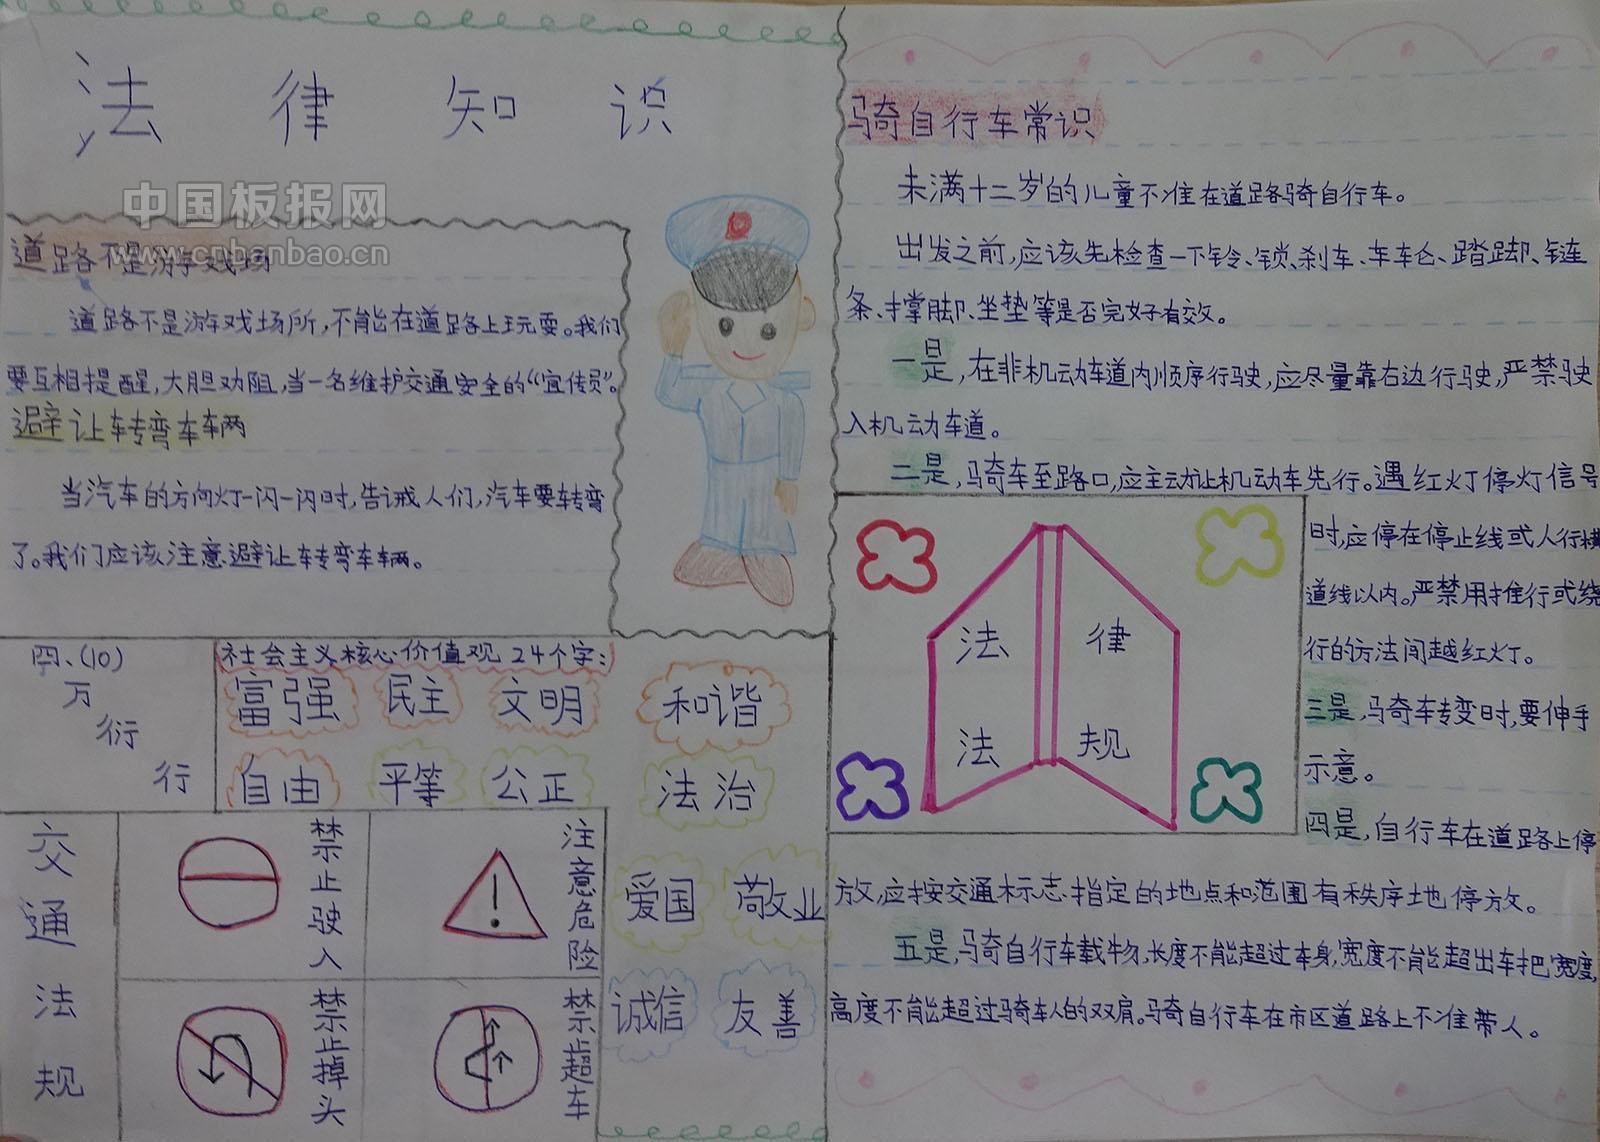 法律知识
中国板报网
www.cnbanbao.cn
道路不是游戏场
道路不是游戏场所,不能在道路上玩耍。我们
要互相提醒,大胆劝阻,当一名维护交通安全的“宣传员”。
避让车转弯车车两
当汽车的方向灯一闪一闪时,告诫人们,汽车要转弯
了。我们应该注意避让车转弯车辆。
四、(10)
万
衍
行
社会主义核心价值观24个字:
富强 民主 文明 和谐
自由 平等 公正 法治
爱国 敬业
诚信 友善
交通法规
禁止驶入
注意危险
禁止掉头
禁止超车
骑自行车常识
未满十二岁的儿童不准在道路骑自行车。
出发之前,应该先检查一下铃、锁、刹车、车轮、踏脚、链
条、撑脚、坐垫等是否完好有效。
一是,在非机动车道内顺序行驶,应尽量靠右边行驶,严禁驶
入机动车道。
二是,骑车至路口,应主动让机动车先行。遇红灯停灯信号
时,应停在停止线或人行横
道线以内。严禁用推行或绕
行的方法闯越红灯。
三是,骑车转变时,要伸手
示意。
四是,自行车在道路上停
放,应按交通标志指定的地点和范围有秩序地停放。
五是,骑自行车载物,长度不能超过本身,宽度不能超出车把宽度,
高度不能超过骑车人的双肩。骑自行车在市区道路上不准带人。
法律
法规